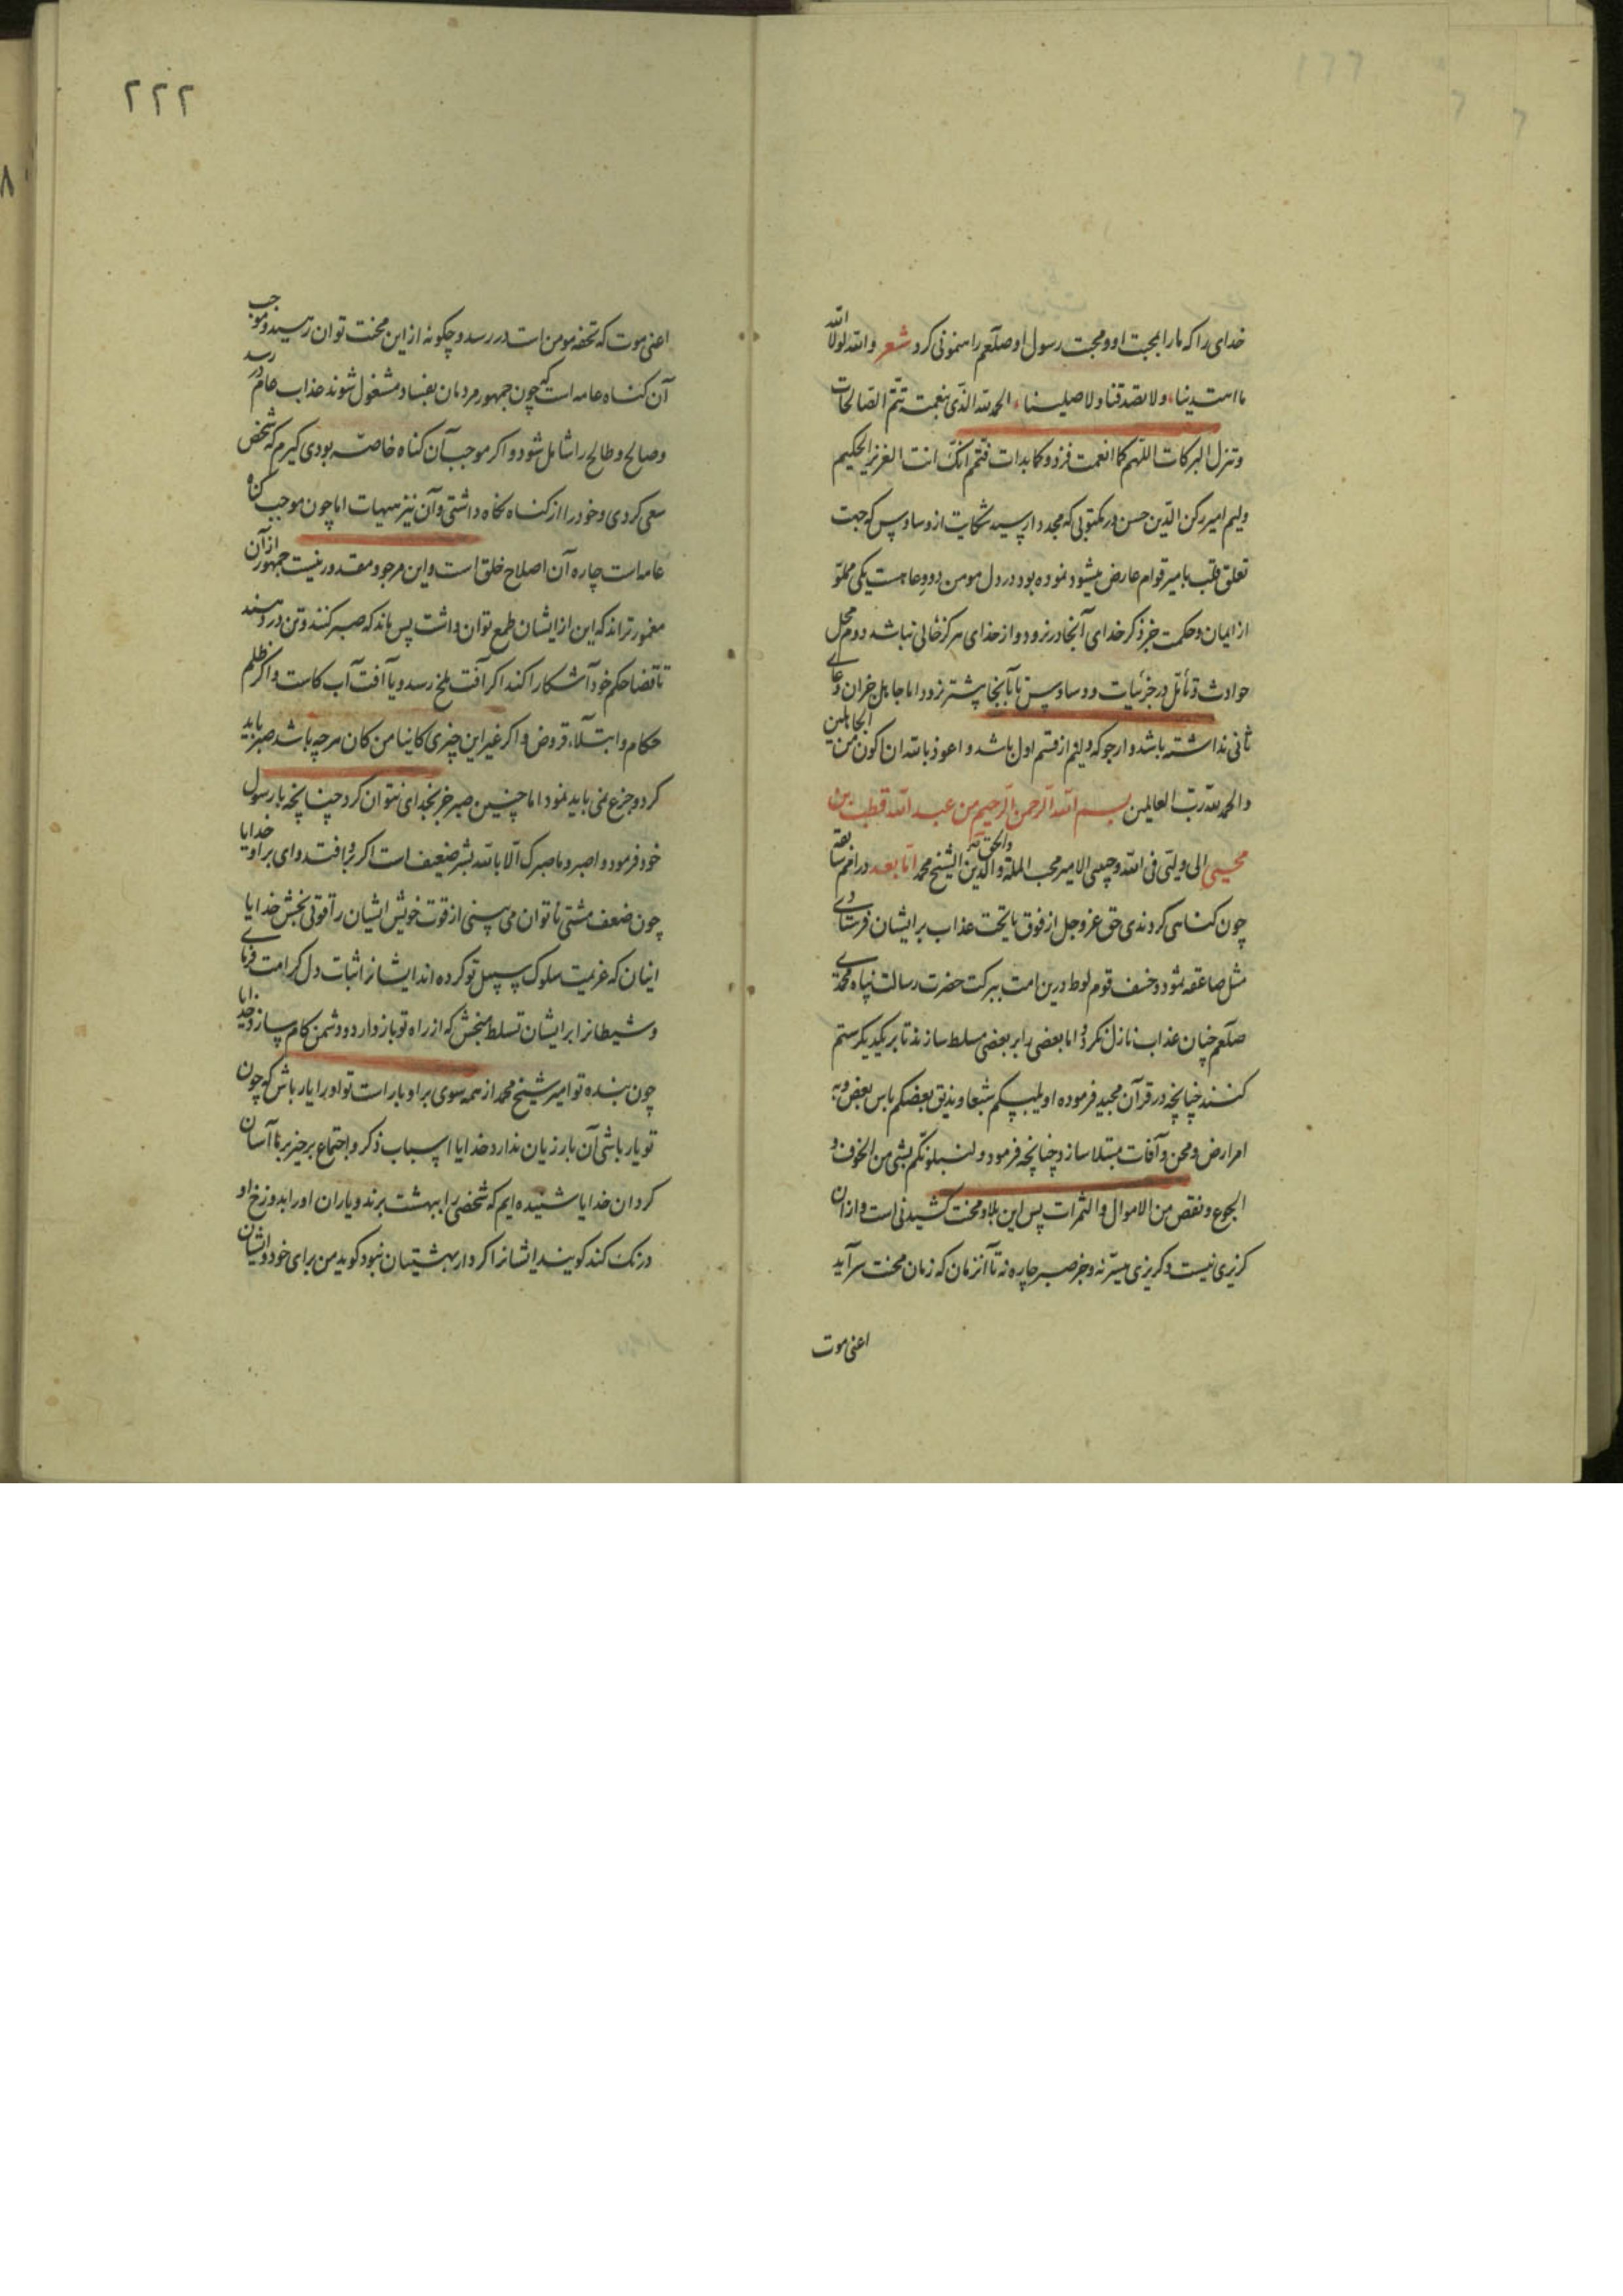 خدای را که ما را بمحبت او و محبت رسول او صلعم راهنمونی کرد شعر والله لولا الله
ما اهتدینا ولا تصدقنا ولا صلینا الحمد لله الذی بنعمته تتم الصالحات
وتنزل البرکات اللهم کما انعمت فزد وکما بدات فتمم انک انت العزیز الحکیم
ولیم امیر رکن الدین حسن در مکتوبی که مجددا رسید شکایت از وساوس که جهت
تعلق قلب بامیر قوام عارض میشود نموده بود در دل مومن دو وعا هست یکی مملو
از ایمان و حکمت جز ذکر خدای آنجا در نرود و از خدای هرکز خالی نباشد دوم محل
حوادث و تأمل در جزئیات و وساوس تا بآنجا پیشتر نرود اما جاهل جز آن وعای
ثانی نداشته باشد و ارجو که ولیم از قسم اول باشد و اعوذ بالله ان اکون من الجاهلین
والحمد لله رب العالمین بسم الله الرحمن الرحیم من عبد الله قطب بن
محیی الی ولیی فی الله وحبیبی الامیر محب الملة والحق والدین الشیخ محمد اما بعد در امم سابقه
چون کناهی کردندی حق عز وجل از فوق یا تحت عذاب بر ایشان فرستادی
مثل صاعقه ثمود و خسف قوم لوط درین امت ببرکت حضرت رسالت پناه محمدی
صلعم چنان عذاب نازل نکرد اما بعضی را بر بعضی مسلط سازند تا بر یکدیکر ستم
کنند چنانچه در قرآن مجید فرموده او یلبسکم شیعا ویذیق بعضکم باس بعض و به
امراض و محن و آفات مبتلا سازد چنانچه فرمود ولنبلونکم بشی من الخوف و
الجوع ونقص من الاموال و الثمرات پس این بلا و محنت کشیدنی است و از ان
کزیری نیست و کریزی میسر نه و جز صبر چاره نه تا آنزمان که زمان محنت سرآید
اعنی موت
٢٢٢
اعنی موت که تحفه مومن است در رسد و چکونه از این محنت توان رهید و موجب
آن کناه عامه است که چون جمهور مردمان بفساد مشغول شوند عذاب عام در رسد
و صالح و طالح را شامل شود و اکر موجب آن کناه خاصه بودی کیرم که شخص
سعی کردی و خود را از کناه نکاه داشتی و آن نیز هیهات اما چون موجب کناه
عامه است چاره آن اصلاح خلق است و این مرجو و مقدور نیست جمهور از آن
مغمورتراند که این از ایشان طمع توان داشت پس ماند که صبر کنند و تن در دهند
تا قضا حکم خود آشکارا کند اکر آفت ملخ رسد و یا آفت آب کاست و اکر ظلم
حکام و ابتلاء قروض و اکر غیر این چیزی کاینا من کان هرچه باشد صبر باید
کرد و جزع نمی باید نمود اما چنین صبر جز بخدای نتوان کرد چنانچه با رسول
خود فرمود و اصبر وما صبرک الا بالله بشر ضعیف است اکر برو افتد وای بر او خدایا
چون ضعف مشتی ناتوان می بینی از قوت خویش ایشان را قوتی بخش خدایا
اینان که عزیمت سلوک سبیل تو کرده اند ایشانرا ثبات دل کرامت فرمای
و شیطانرا بر ایشان تسلط مبخش که از راه تو باز دارد و دشمن کام سازد خدایا
چون بنده تو امیر شیخ محمد از همه سوی بر او بار است تو او را یار باش که چون
تو یار باشی آن بار زیان ندارد خدایا اسباب ذکر و اجتماع بر خیر بر ما آسان
کردان خدایا شنیده ایم که شخصی را ببهشت برند و یاران او را بدوزخ او
درنک کند کویند ایشانرا کردار بهشتیان نبود کوید من برای خود و ایشان